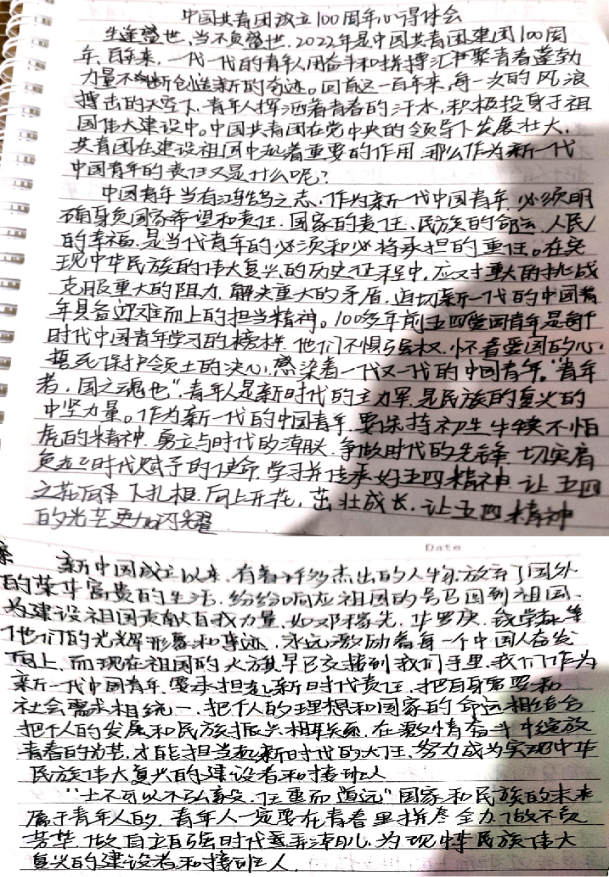 中国共青团成立100周年心得体会
生逢盛世,当不负盛世.2022年是中国共青团建团100周
年,百年来,一代一代的青年人用奋斗和拼搏汇聚青春蓬勃
力量不断创造新的奇迹。回首这一百年来,每一次的风浪
搏出的天空下,青年人挥洒着青春的汗水,积极投身于祖
国伟大建设中。中国共青团在党中央的领导下发展壮大,
共青团在建设祖国中起着重要的作用.那么作为新一代
中国青年的责任又是什么呢?
中国青年当有鸿鹄之志,作为新一代中国青年,必须明
确身负国家希望和责任.国家的责任、民族的命运、人民
的幸福,是当代青年的必须和必将承担的重任。在实
现中华民族的伟大复兴的历史征程中,应对重大的挑战
克服重大的阻力,解决重大的矛盾,迫切新一代的中国青
年具备迎难而上的担当精神。100多年前五四爱国青年是每个
时代中国青年学习的榜样,他们不惧强权,怀着爱国的心,
誓死保护领土的决心,感染着一代又一代的中国青年。"青年
者,国之魂也",青年人是新时代的主力军,是民族的复兴的
中坚力量。作为新一代的中国青年,要保持初生牛犊不怕
虎的精神,勇立与时代的潮头,争做时代的先锋,切实肩
负起时代赋予的使命,学习并传承好五四精神,让五四
之花向下扎根,向上开花,茁壮成长,让五四精神
的光芒更加闪耀
Date
新中国成立以来,有着许多杰出的人物,放弃了国外
的荣华富贵的生活,纷纷响应祖国的号召回到祖国,
为建设祖国贡献自我力量,如邓稼先,华罗庚,钱学森等
他们的光辉形象和事迹,永远激励着每一个中国人奋发
向上,而现在祖国的大旗早已交接到我们手里,我们作为
新一代中国青年,要承担起新时代责任,把自身需要和
社会需求相统一,把个人的理想和国家的命运相结合
把个人的发展和民族振兴相联系,在激情奋斗中绽放
青春的光芒,才能担当起新时代的大任,努力成为实现中华
民族伟大复兴的建设者和接班人
"士不可以不弘毅,任重而道远"国家和民族的未来
属于青年人的,青年人一定要在青春里拼尽全力,做不负
芳华,做自立自强时代弄潮儿,为现华民族伟大
复兴的建设者和接班人.